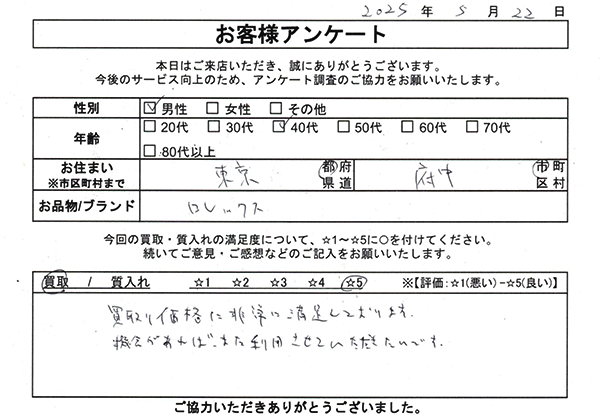 2025 年 5 月 22 日
お客様アンケート
本日はご来店いただき、誠にありがとうございます。
今後のサービス向上のため、アンケート調査のご協力をお願いいたします。
性別 ☑男性 □女性 □その他
年齢 □20代 □30代 ☑40代 □50代 □60代 □70代
□80代以上
お住まい 東京 都府 府中 市町
※市区町村まで 県道 区村
お品物/ブランド ロレックス
今回の買取・質入れの満足度について、☆1～☆5に○を付けてください。
続いてご意見・ご感想などのご記入をお願いいたします。
買取 / 質入れ ☆1 ☆2 ☆3 ☆4 ☆5 ※【評価:☆1(悪い)-☆5(良い)】
買取り価格に非常に満足しております。
機会があればまた利用させていただきたいです。
ご協力いただきありがとうございました。